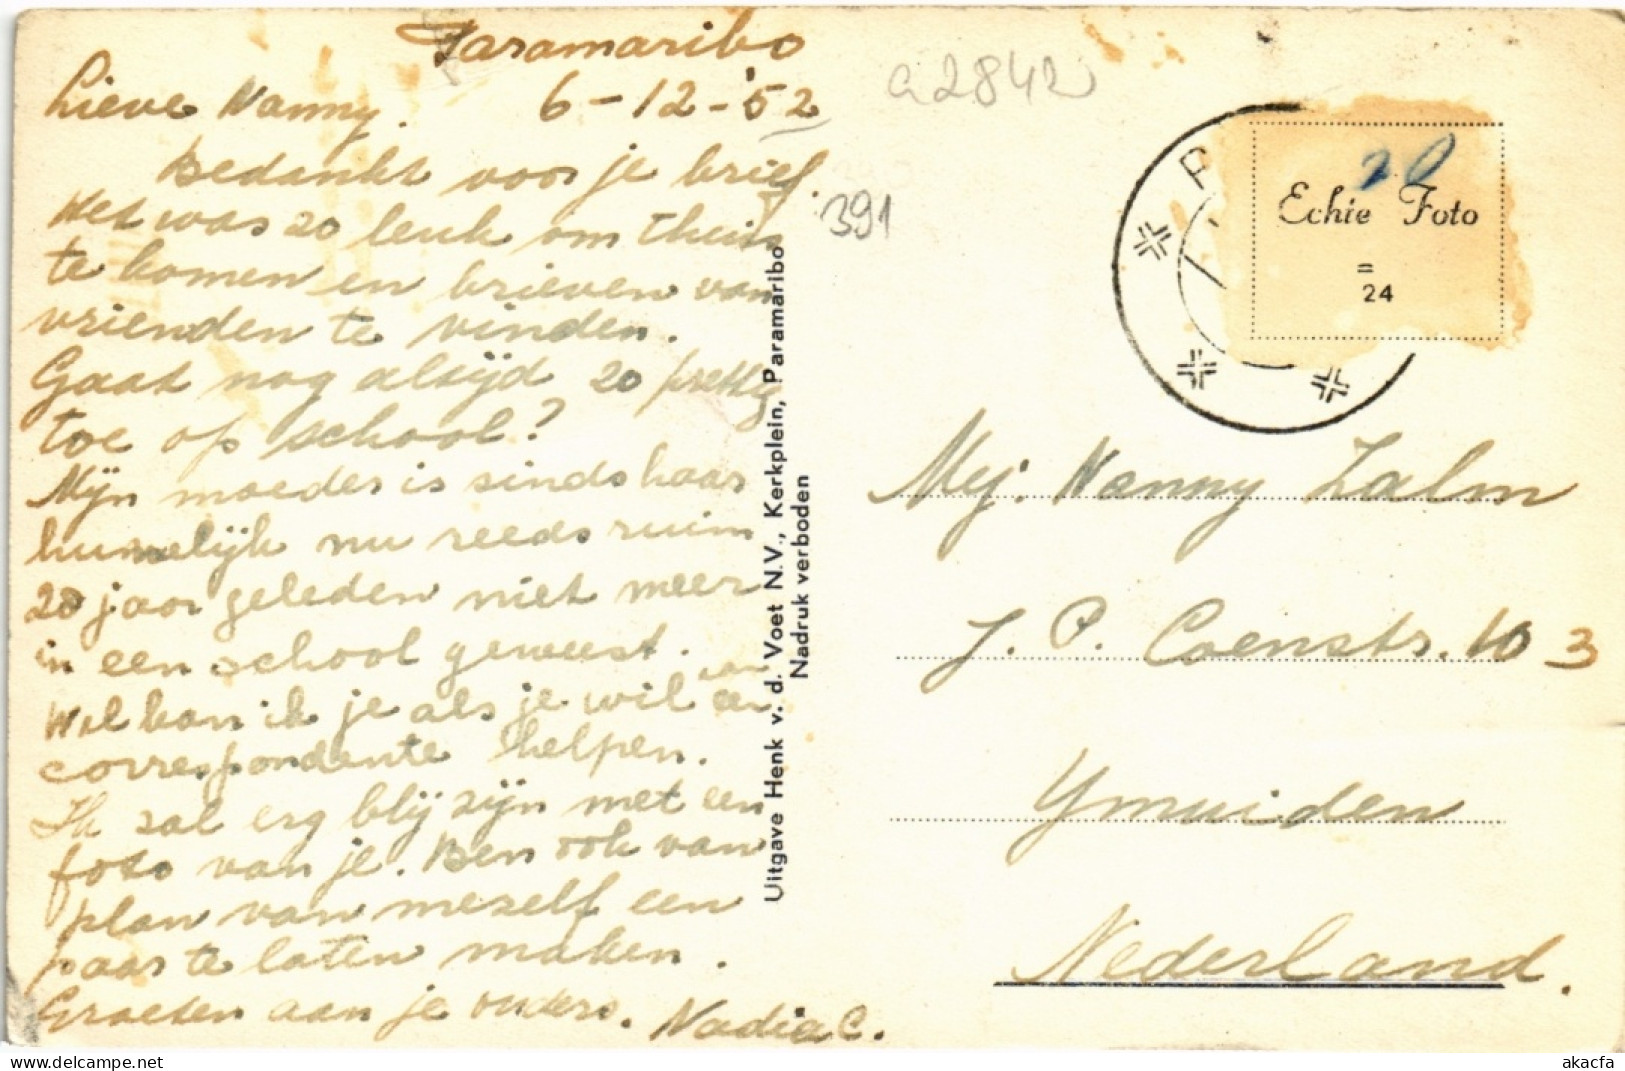 Paramaribo
6-12-'52
Lieve Nanny.
Bedankt voor je brief.
Het was zo leuk om thuis
te komen en brieven van
vrienden te vinden.
Gaat nog altijd zo prettig
toe op school?
Mijn moeder is sinds haar
huwelijk nu reeds ruim
20 jaar geleden niet meer
in een school geweest.
Wel kan ik je als je wil aan een
correspondente helpen.
Ik zal erg blij zijn met een
foto van je. Ben ook van
plan van mezelf een
paar te laten maken.
Groeten aan je ouders. Nadia C.
Uitgave Henk v. d. Voet N.V., Kerkplein, Paramaribo
Nadruk verboden
a2842
391
P
20
Echte Foto
=
24
Mej. Nanny Zalm
J. P. Coenstr. 103
Ymuiden
Nederland.
akacfa